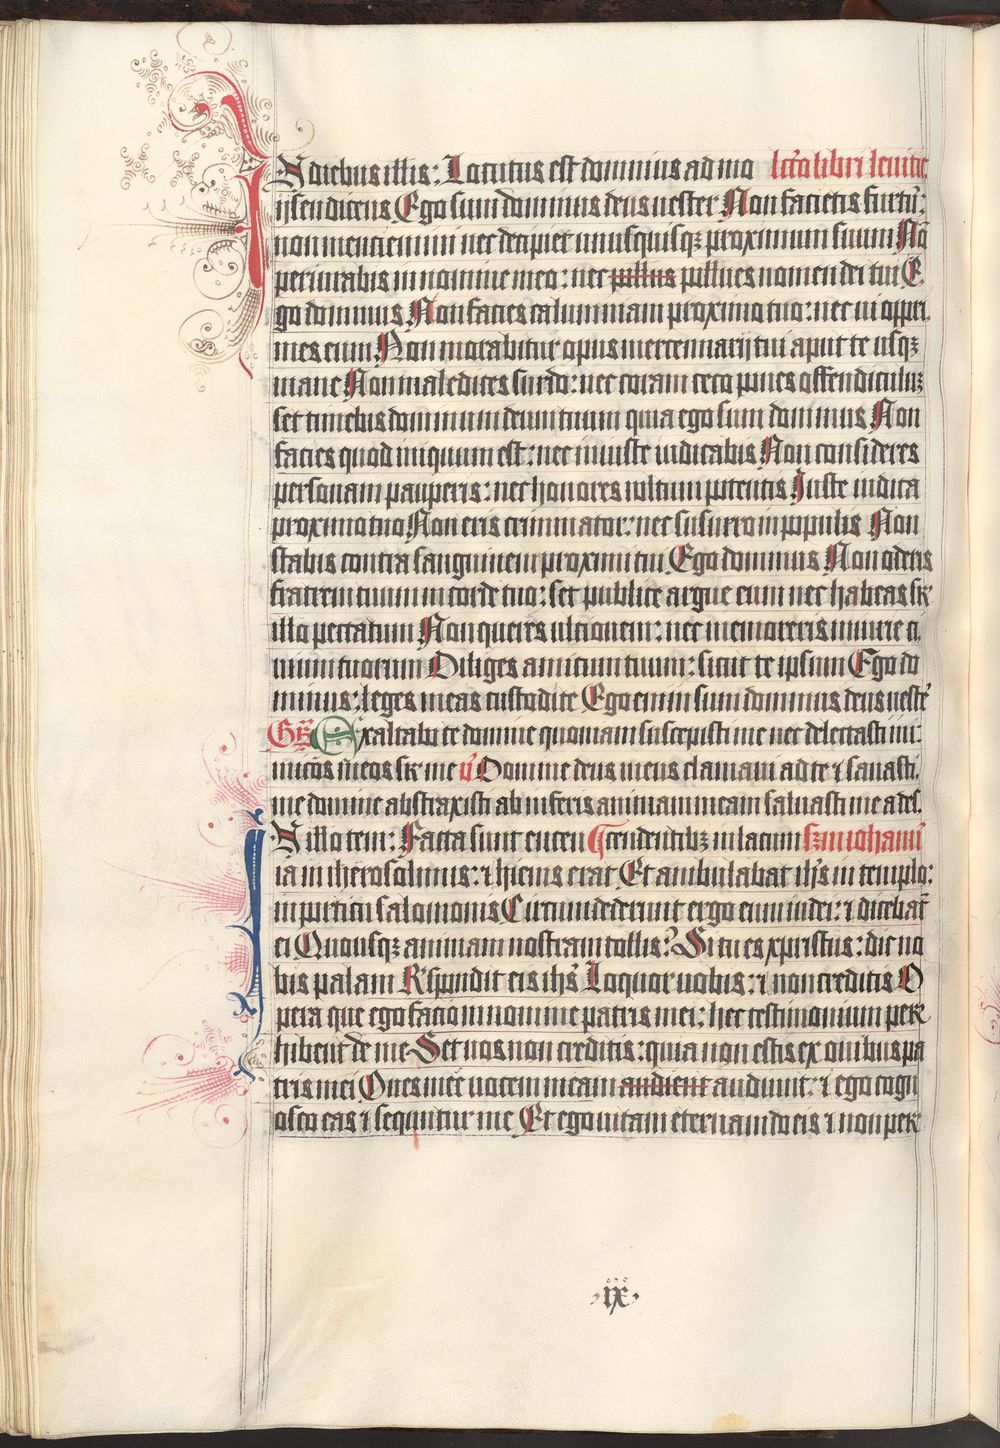 IN diebus illis: Locutus est dominus ad mo lcčo libri leuitic̄
ysen dicens Ego sum dominus deus uester Non facietis furtū:
non menciemini nec decipiet unusquisqꝫ proximum suum Nō
periurabis in nomine meo: nec pollues nomen dei tui E
go dominus Non facies calumniam proximo tuo: nec ui oppri
mes eum Non morabitur opus mercennarij tui aput te usqꝫ
mane Non maledices surdo: nec coram ceco pones offendiculuꝫ
set timebis dominum deum tuum quia ego sum dominus Non
facies quod iniquum est: nec iniuste iudicabis Non consideres
personam pauperis: nec honores uultum potentis Iuste iudica
proximo tuo Non eris criminator: nec susurro in populis Non
stabis contra sanguinem proximi tui Ego dominus Non oderis
fratrem tuum in corde tuo: set publice argue eum nec habeas sr̄
illo peccatum Non queres ultionem: nec memoreris iniurie ci
uium tuorum Diliges amicum tuum: sicut te ipsum Ego do
minus: leges meas custodite Ego enim sum dominus deus ueste᷑
Gr̄ Exaltabo te domine quoniam suscepisti me nec delectasti ini
micos meos sr̄ me ℣ Domine deus meus clamaui ad te ⁊ sanasti
me domine abstraxisti ab inferis animam meam saluasti me a des
IN illo tem: Facta sunt encen Ccendentibꝫ in lacum scꝫm iohanū
ia in iherosolimis: ⁊ hiems erat Et ambulabat ih̄s in templo:
in porticu salomonis Circumdederunt ergo eum iudei: ⁊ dicebāt
ei Quousqꝫ animam nostram tollis? Si tu es xpristus: dic no
bis palam R̄spondit eis ih̄s Loquor uobis: ⁊ non creditis O
pera que ego facio in nomine patris mei: hec testimonium per
hibent de me Set uos non creditis: quia non estis ex ouibus pa
tris mei Oues mee uocem meam audient audiunt: ⁊ ego cogn
osco eas ⁊ sequntur me Et ego uitam eternam do eis ⁊ non per
ix